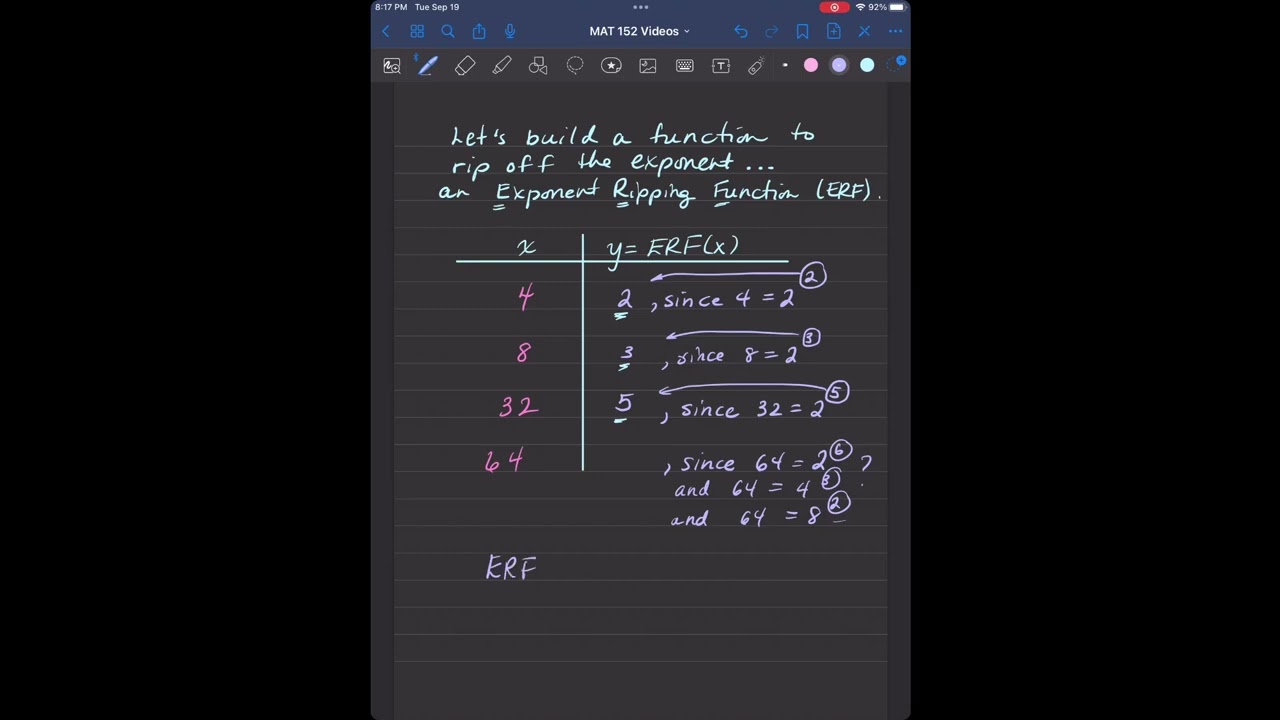 8:17 PM Tue Sep 19
92%
MAT 152 Videos
T
Let's build a function to
rip off the exponent...
an Exponent Ripping Function (ERF).
x y = ERF(x)
4 2, since 4 = 2²
8 3, since 8 = 2³
32 5, since 32 = 2⁵
64 , since 64 = 2⁶ ?
and 64 = 4³
and 64 = 8²
ERF